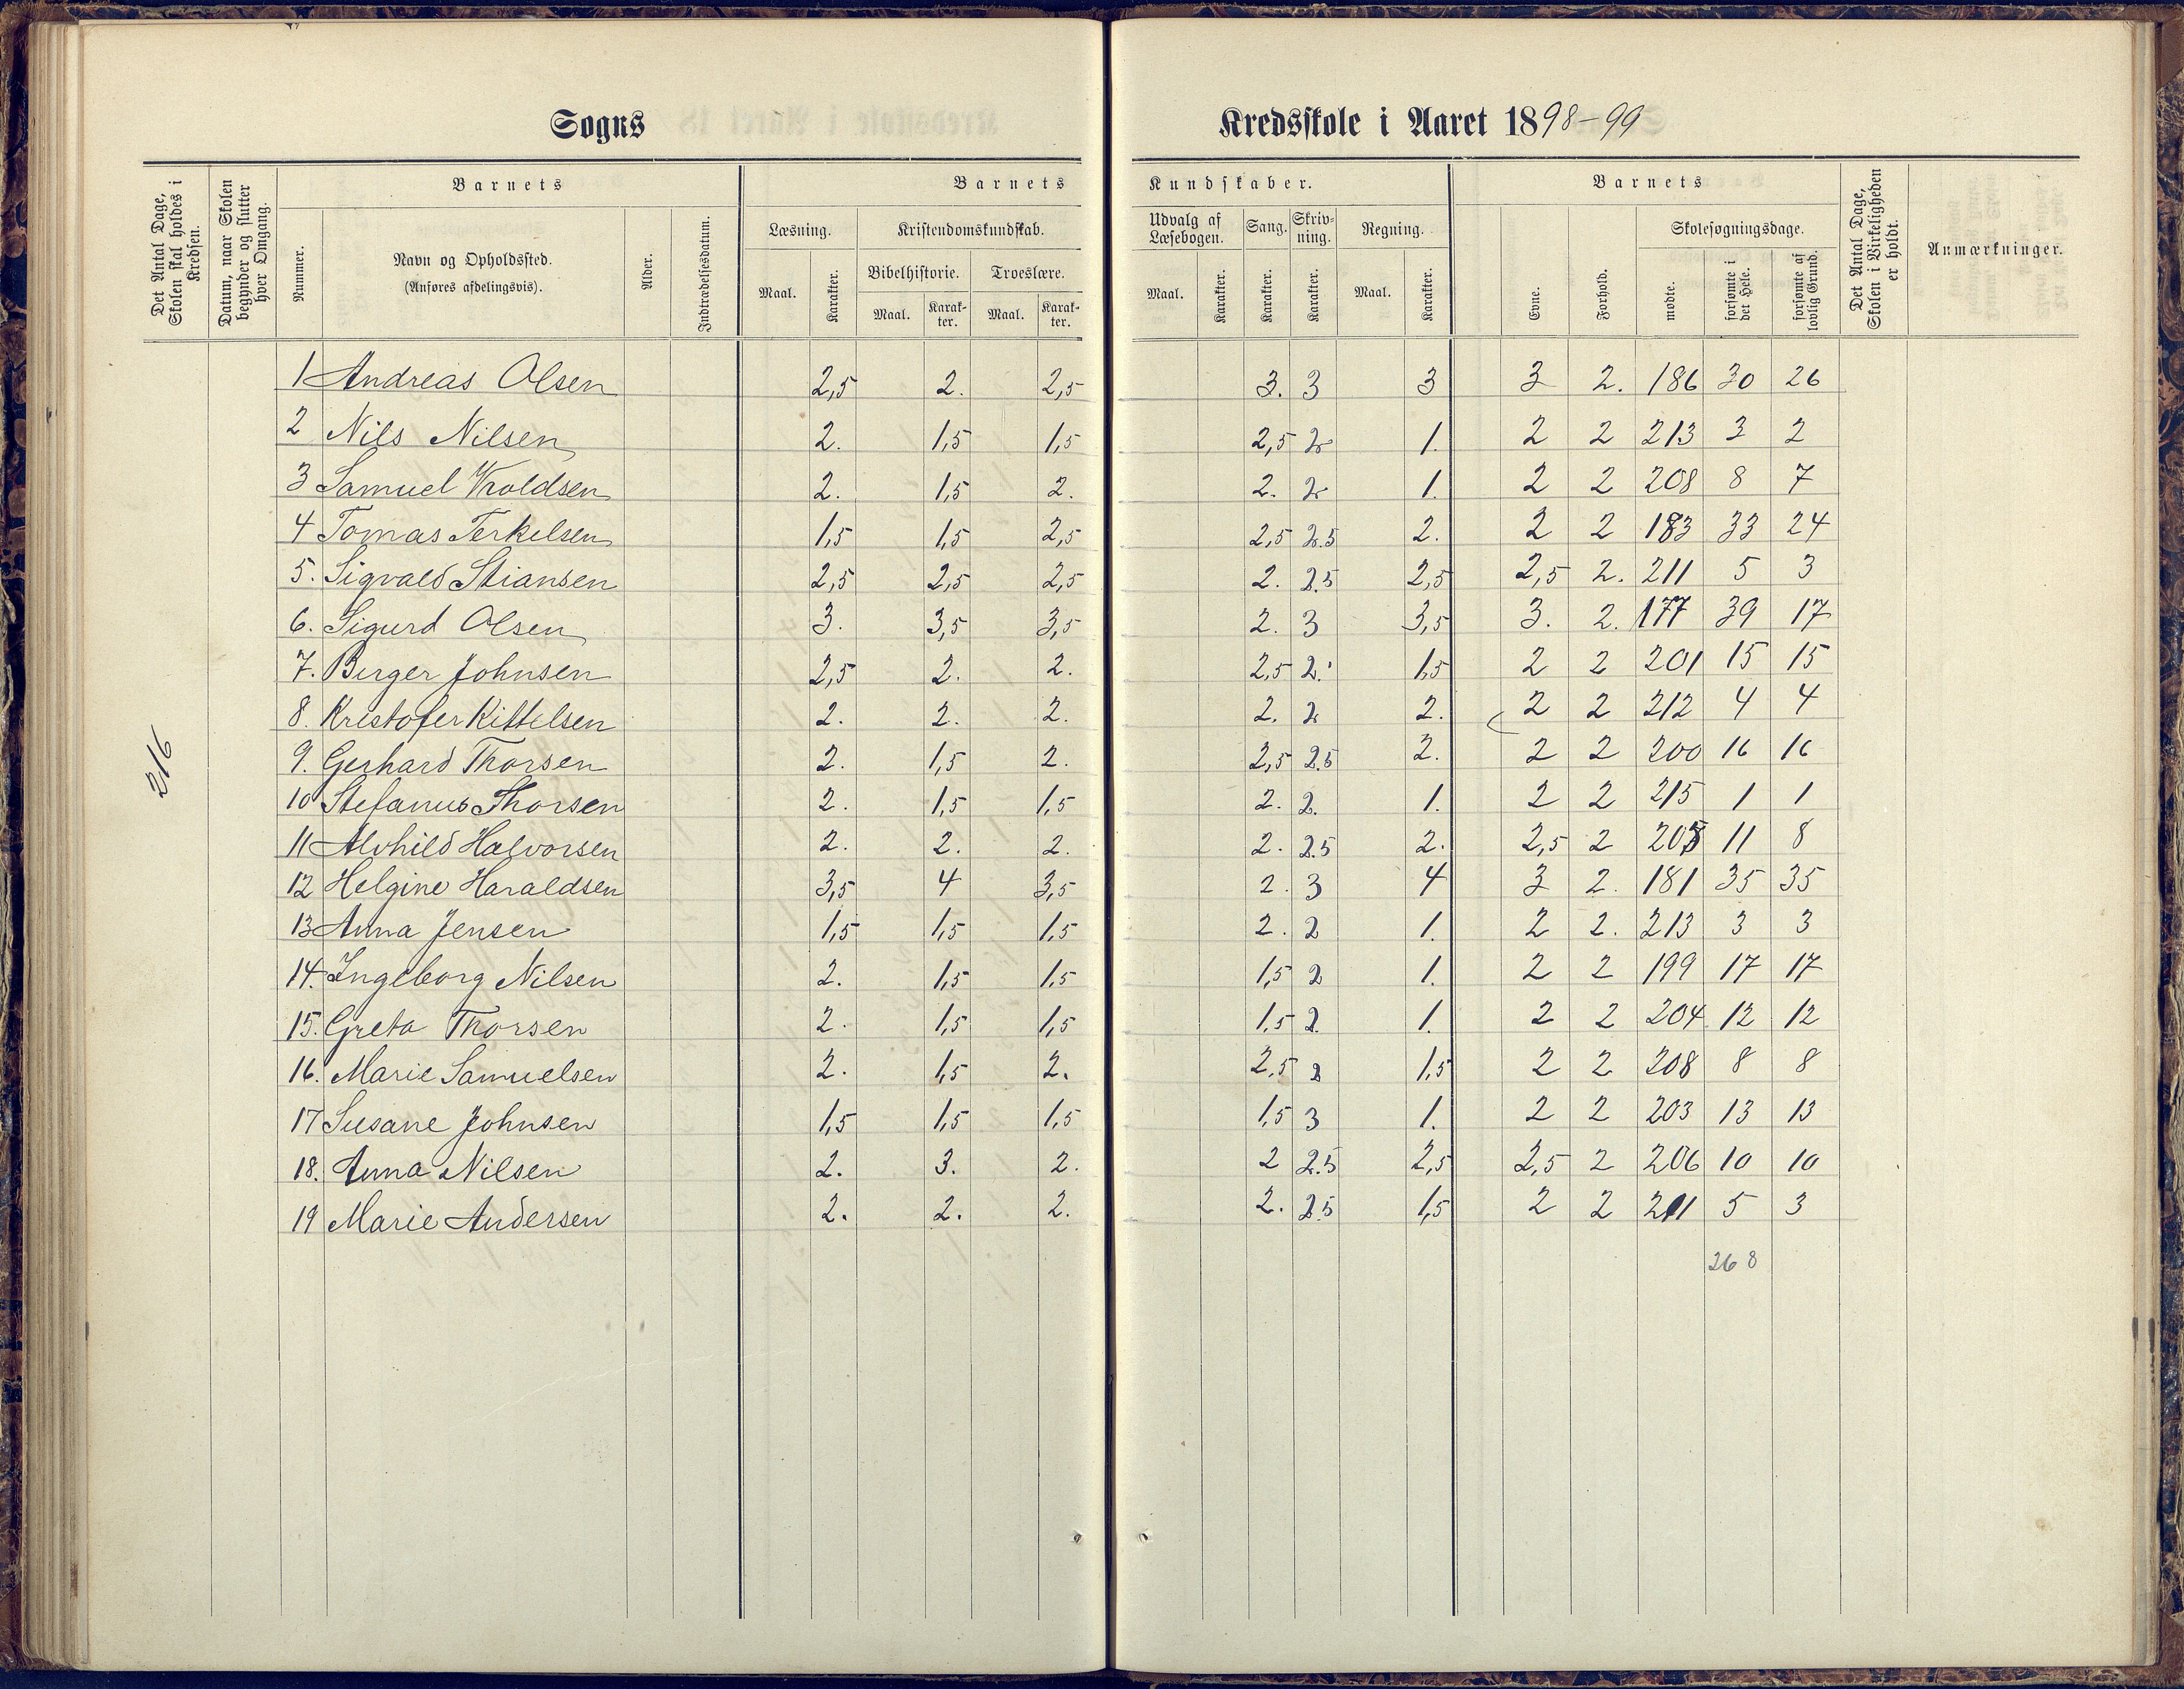 Sogns Kredsskole i Aaret 1898-99
Det Antal Dage, Skolen skal holdes i Kredsen.
Datum, naar Skolen begynder og slutter hver Omgang.
Barnets
Nummer.
Navn og Opholdssted.
(Anføres afdelingsvis).
Alder.
Indtrædelsesdatum.
Barnets Kundskaber.
Læsning.
Maal. Karakter.
Kristendomskundskab.
Bibelhistorie. Troeslære.
Maal. Karakter. Maal. Karakter.
Udvalg af Læsebogen.
Maal. Karakter.
Sang.
Karakter.
Skrivning.
Karakter.
Regning.
Maal. Karakter.
Barnets
Evne.
Forhold.
Skolesøgningsdage.
mødte.
forsømte i det Hele.
forsømte af lovlig Grund.
Det Antal Dage, Skolen i Virkeligheden er holdt.
Anmærkninger.
216
1 Andreas Olsen 2,5 2. 2,5 3. 3 3 3 2. 186 30 26
2 Nils Nilsen 2. 1,5 1,5 2,5 2 1. 2 2 213 3 2
3 Samuel Vroldsen 2. 1,5 2. 2. 2 1. 2 2 208 8 7
4 Tomas Terkelsen 1,5 1,5 2,5 2,5 2.5 2. 2 2 183 33 24
5. Sigvald Stiansen 2,5 2,5 2,5 2. 2.5 2,5 2,5 2. 211 5 3
6. Sigurd Olsen 3. 3,5 3,5 2. 3 3,5 3. 2. 177 39 17
7. Birger Johnsen 2,5 2. 2. 2,5 2. 1,5 2 2 201 15 15
8. Kristofer Kittelsen 2. 2. 2. 2. 2 2. 2 2 212 4 4
9. Gerhard Thorsen 2. 1,5 2. 2,5 2.5 2. 2 2 200 16 16
10 Stefanus Thorsen 2. 1,5 1,5 2. 2. 1. 2 2 215 1 1
11 Alvhild Halvorsen 2. 2. 2. 2. 2.5 2. 2,5 2 205 11 8
12 Helgine Haraldsen 3,5 4 3,5 2. 3 4 3 2. 181 35 35
13 Anna Jensen 1,5 1,5 1,5 2. 2 1. 2 2. 213 3 3
14. Ingeborg Nilsen 2. 1,5 1,5 1,5 2 1. 2 2 199 17 17
15. Greta Thorsen 2. 1,5 1,5 1,5 2. 1. 2 2 204. 12 12
16. Marie Samuelsen 2. 1,5 2. 2,5 2 1,5 2 2 208 8 8
17 Susane Johnsen 1,5 1,5 1,5 1,5 3 1. 2 2 203 13 13
18. Anna Nilsen 2. 3. 2. 2 2.5 2,5 2,5 2 206 10 10
19 Marie Andersen 2. 2. 2. 2. 2.5 1,5 2 2 211 5 3
268